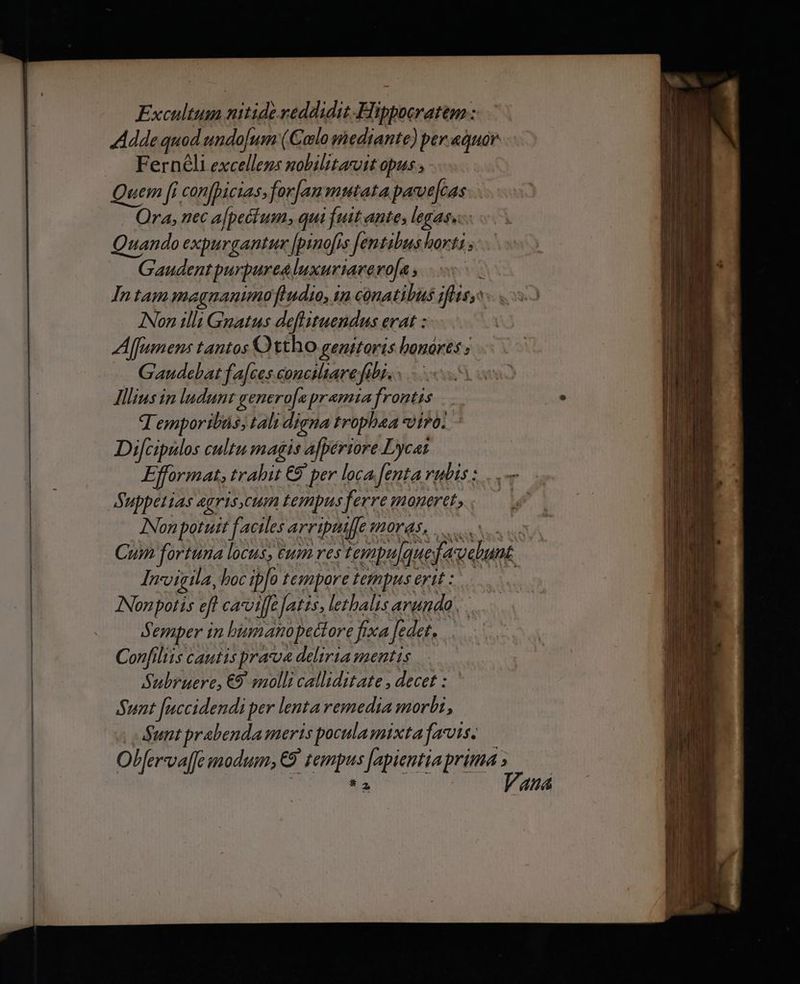 Excultum nitide reddidit Hippocratem :
Adde quod undoſum (Cœlo mediante) per æquor
Fernêli excellens nobilitavit opus ,
Quem ſi conſpicias, forſan mutata paveſcas
Ora, nec aſpectum, qui fuit ante, legas.
Quando expurgantur ſpinoſis ſentibus horti ,
Gaudent purpureæ luxuriare roſæ ,
In tam magnanimo ſtudio, in conatibus iſtis,
Non illi Gnatus deſtituendus erat :
Aſſumens tantos Ottho genitoris honores ,
Gaudebat faſces conciliare ſibi.
Illius in ludunt generoſæ præmia frontis
Temporibus, tali digna trophæa viro.
Diſcipulos cultu magis aſperiore Lycæi
Efformat, trahit & per loca ſenta rubis :
Suppetias ægris, cum tempus ferre moneret,
Non potuit faciles arripuiſſe moras,
Cum fortuna locus, cum res tempuſque favebunt
Invigila, hoc ipſo tempore tempus erit :
Non potis eſt caviſſe ſatis, lethalis arundo
Semper in humano pectore fixa ſedet.
Conſiliis cautis prava deliria mentis
Subruere, & molli calliditate , decet :
Sunt ſuccidendi per lenta remedia morbi,
Sunt præbenda meris pocula mixta favis.
Obſervaſſe modum, & tempus ſapientia prima ,
* 2
Vana